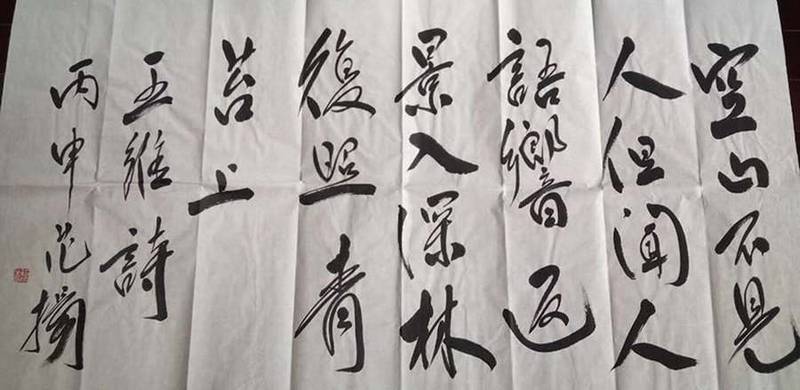 空山不見
人但闻人
語響返
景入深林
復照青
苔上
王維詩
丙申范揚